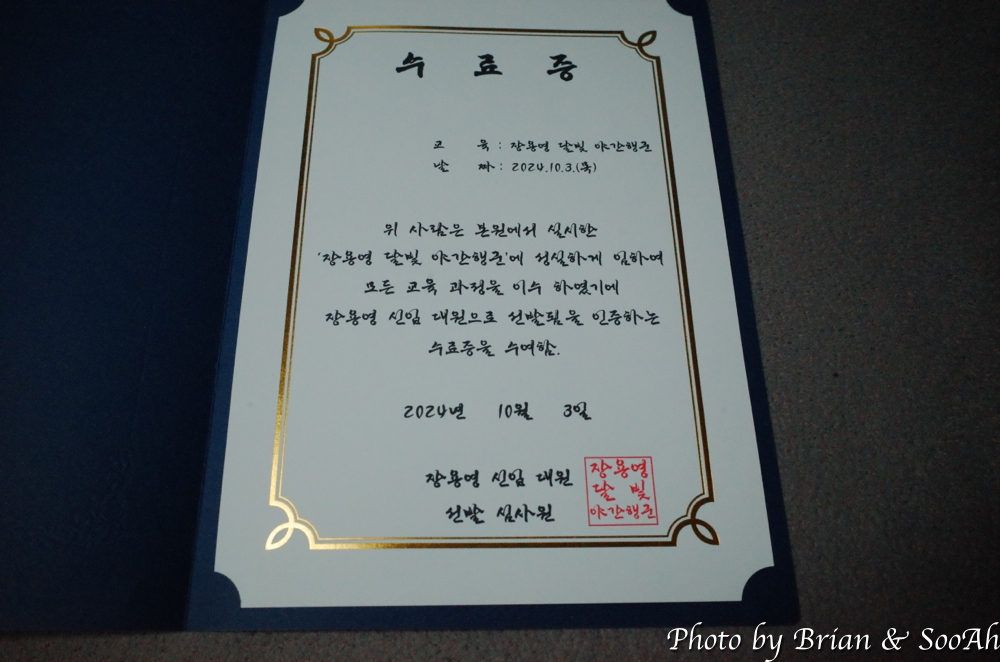 수 료 증
교 육 : 장용영 달빛 야간행군
날 짜 : 2024.10.3.(목)
위 사람은 본원에서 실시한
'장용영 달빛 야간행군'에 성실하게 임하여
모든 교육 과정을 이수 하였기에
장용영 신임 대원으로 선발됨을 인증하는
수료증을 수여함.
2024년 10월 3일
장용영 신임 대원
선발 심사원
장용영
달 빛
야간행군
Photo by Brian & SooAh